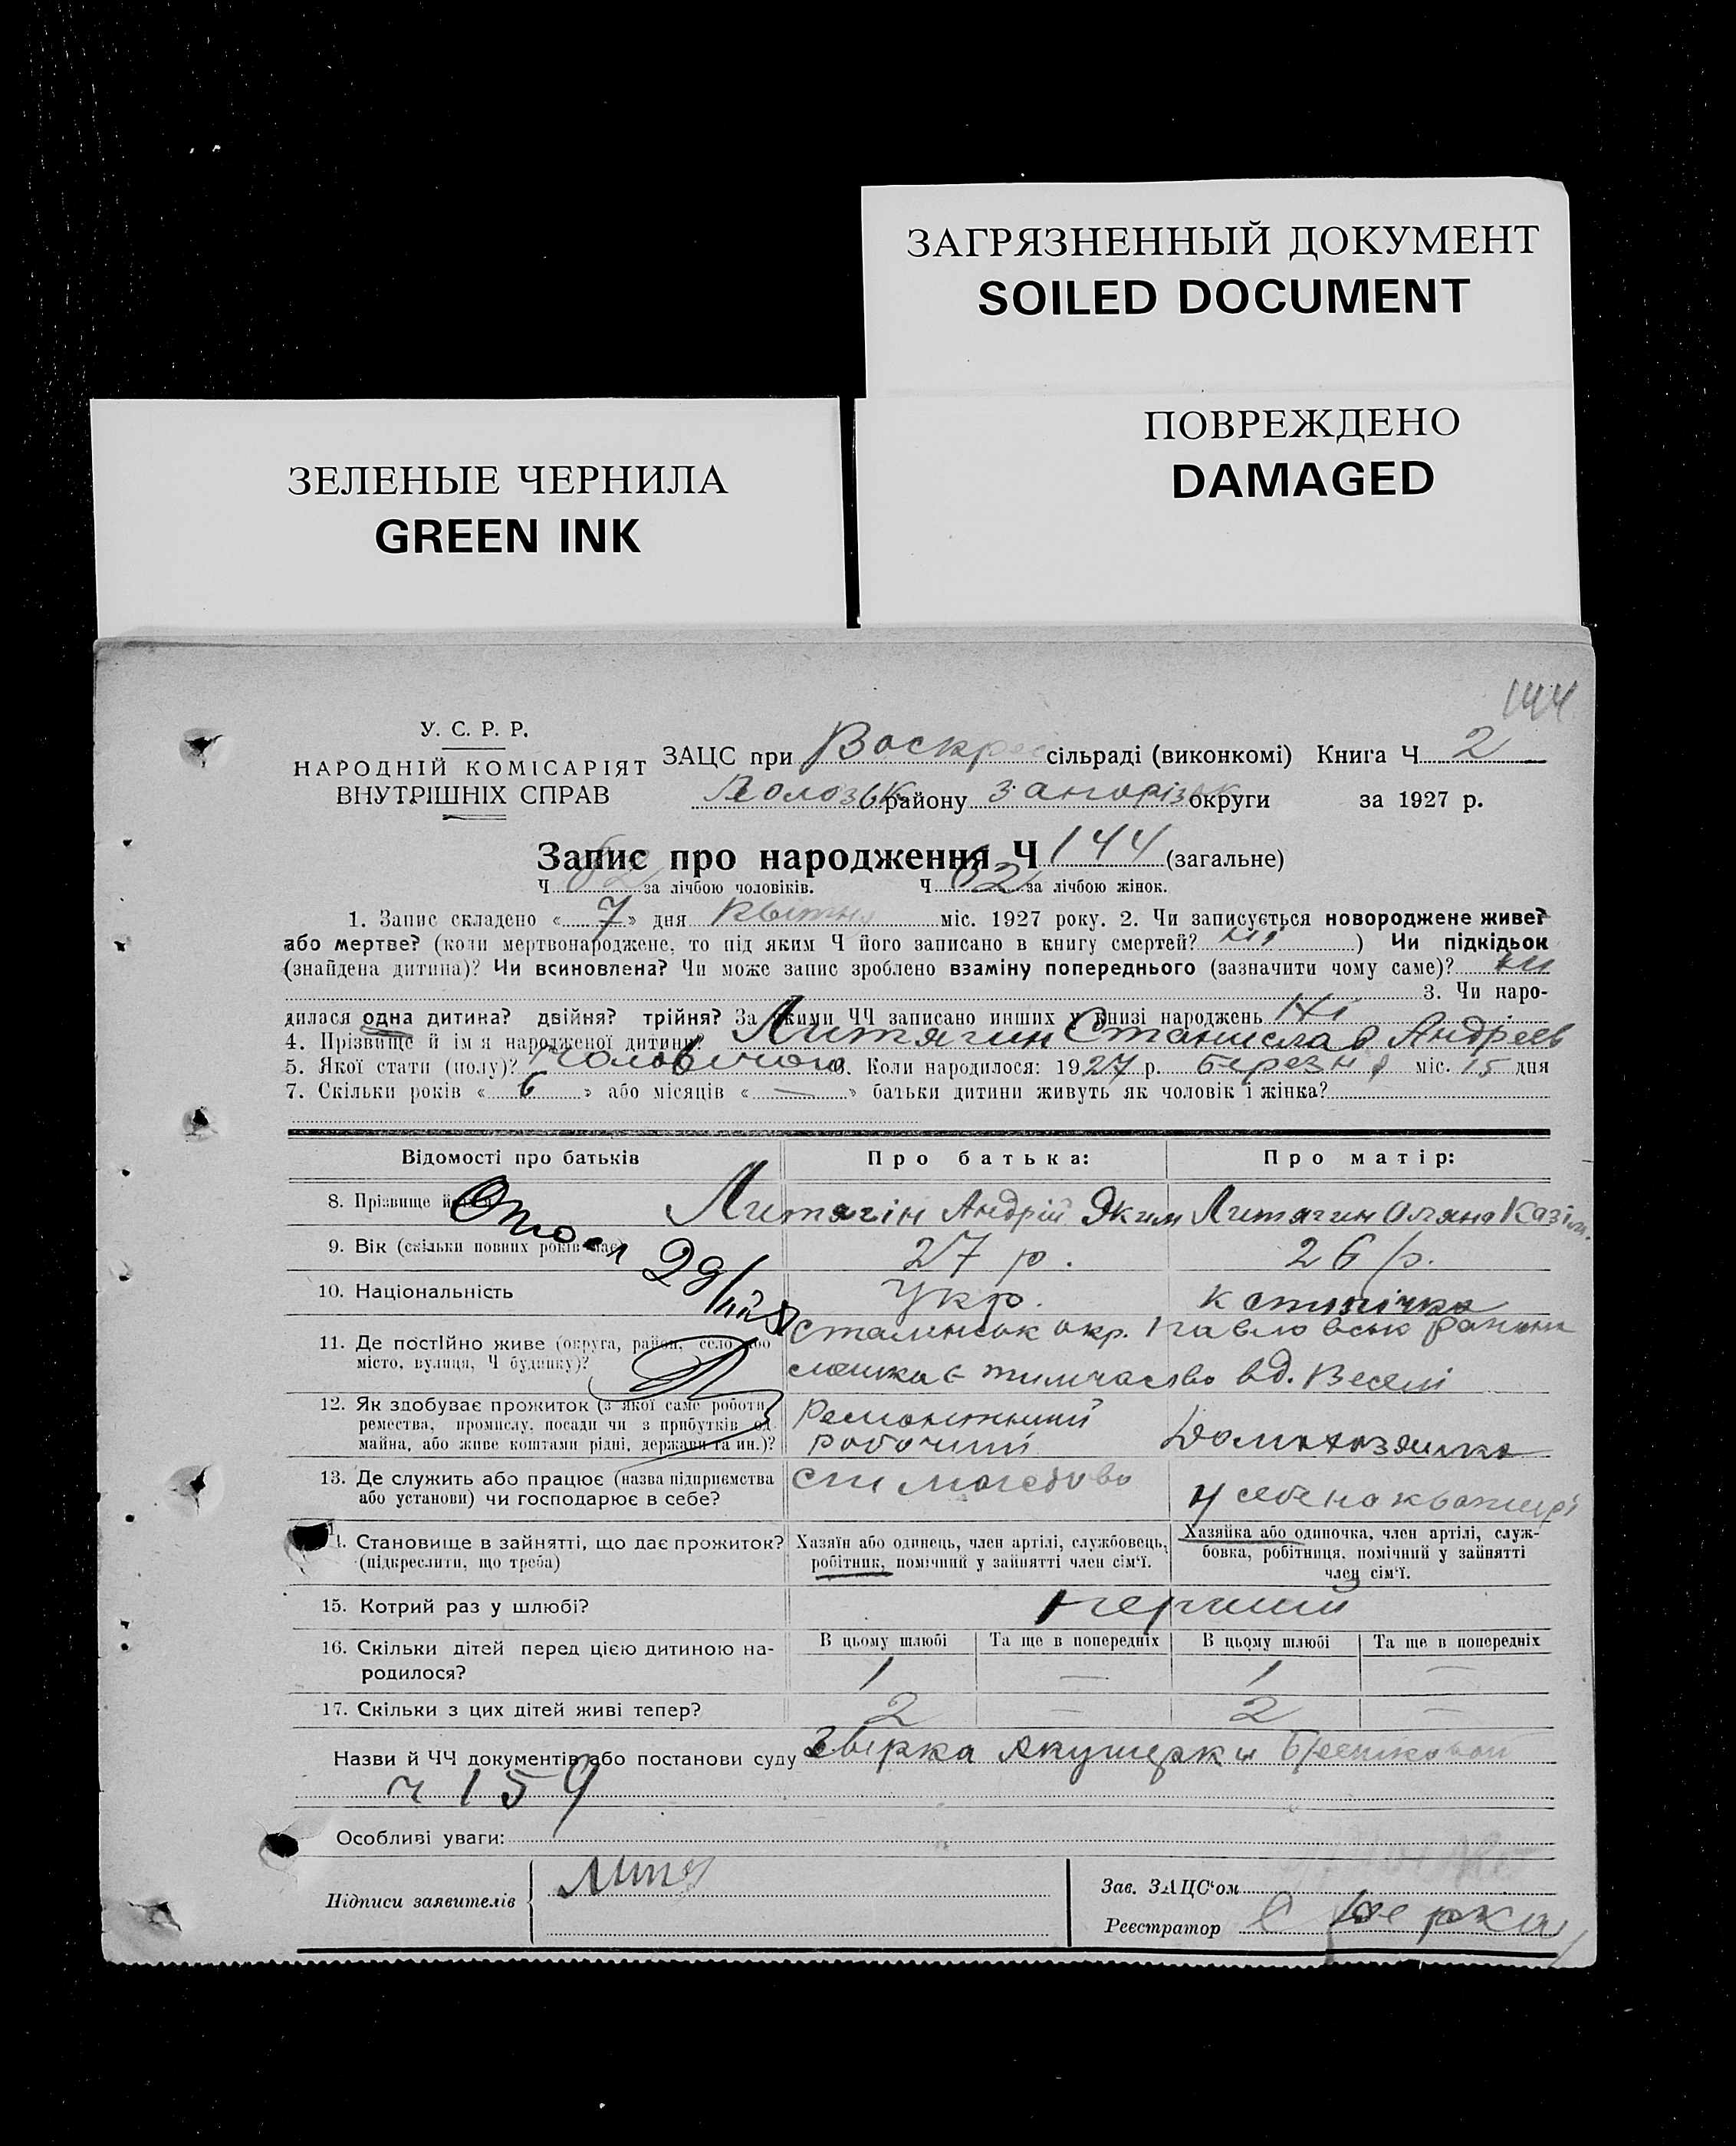 ЗАГРЯЗНЕННЫЙ ДОКУМЕНТ
SOILED DOCUMENT
ПОВРЕЖДЕНО
DAMAGED
ЗЕЛЕНЫЕ ЧЕРНИЛА
GREEN INK
144
У. С. Р. Р.
НАРОДНІЙ КОМІСАРІЯТ
ВНУТРІШНІХ СПРАВ
ЗАЦС при Воскрес сільраді (виконкомі) Книга Ч 2
району округи за 1927 р.
Запис про народження Ч 144 (загальне)
Ч 82 за лічбою чоловіків. Ч 62 за лічбою жінок.
1. Запис складено « 7 » дня Квітня міс. 1927 року. 2. Чи записується новороджене живе?
або мертве? (коли мертвонароджене, то під яким Ч його записано в книгу смертей? ні ) Чи підкідьок
(знайдена дитина)? Чи всиновлена? Чи може запис зроблено взаміну попереднього (зазначити чому саме)? ні
3. Чи наро-
дилася одна дитина? двійня? трійня? За якими ЧЧ записано инших у книзі народжень Ні
4. Прізвище й ім'я народженої дитини? Литягин Станислав Андреев
5. Якої стати (полу)? Чоловічого 6. Коли народилося: 1927 р. березня міс. 15 дня
7. Скільки років « 6 » або місяців « — » батьки дитини живуть як чоловік і жінка?
Відомості про батьків Про батька: Про матір:
8. Прізвище й Литягін Андрій Яким Литягин Оляна Казім.
9. Вік (скільки повних років має) 27 р. 26 р.
10. Національність Укр.
11. Де постійно живе (округа, район, село або
місто, вулиця, Ч будинку)?
Сталінськ окр. Павловськ район
мешкає тимчасово в д. Веселі
12. Як здобуває прожиток (з якої саме роботи,
ремества, промислу, посади чи з прибутків од
майна, або живе коштами рідні, держави та ин.)?
Ремонтний
робочий
Домохозяйка
13. Де служить або працює (назва підприємства
або установи) чи господарює в себе?
У себе на квартирі
14. Становище в зайнятті, що дає прожиток?
(підкреслити, що треба)
Хазяїн або одинець, член артілі, службовець,
робітник, помічний у зайнятті член сім'ї.
Хазяйка або одиночка, член артілі, служ-
бовка, робітниця, помічний у зайнятті
член сім'ї.
15. Котрий раз у шлюбі? перший
16. Скільки дітей перед цією дитиною на-
родилося?
В цьому шлюбі Та ще в попередніх В цьому шлюбі Та ще в попередніх
1 — 1 —
17. Скільки з цих дітей живі тепер? 2 — 2 —
Назви й ЧЧ документів або постанови суду Звірка Акушерки
ч 159
Особливі уваги:
Підписи заявителів
Зав. ЗАЦС'ом
Реєстратор